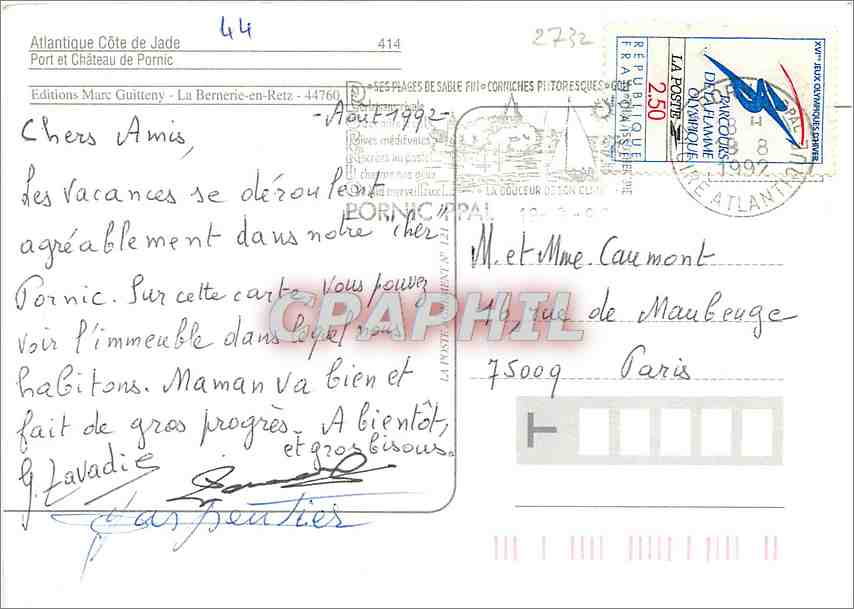 44
2732
Atlantique Côte de Jade 414
Port et Château de Pornic
Editions Marc Guitteny - La Bernerie-en-Retz - 44760
SES PLAGES DE SABLE FIN - CORNICHES PITTORESQUES
LA DOUCEUR DE SON
PORNIC PPAL
RÉPUBLIQUE
FRANÇAISE
2.50
LA POSTE
PARCOURS
DE LA FLAMME
OLYMPIQUE
XVIes JEUX OLYMPIQUES D'HIVER
1992
LOIRE ATLANTIQUE
- Août 1992 -
Chers Amis,
Les vacances se déroulent
agréablement dans notre "cher"
Pornic. Sur cette carte, vous pouvez
voir l'immeuble dans lequel nous
habitons. Maman va bien et
fait de gros progrès. A bientôt,
et gros bisous.
G. Lavadie
Carpentier
M. et Mme. Caumont
46, rue de Maubeuge
75009 Paris
CPAPHIL
T